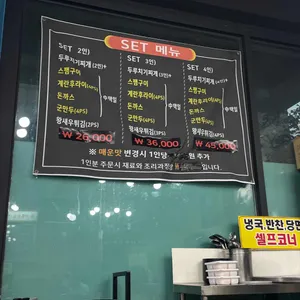 SET 메뉴
SET 2인)
두루치기찌개(2인)+
스팸구이
계란후라이(4PS)
돈까스
군만두(4PS)
왕새우튀김(2PS)
수제일
₩ 26,000
SET 3인)
두루치기찌개(3인)+
스팸구이
계란후라이(4PS)
돈까스
군만두(4PS)
왕새우튀김(3PS)
수제일
₩ 36,000
SET 4인)
두루치기찌개(4인)+
스팸구이
계란후라이(4PS)
돈까스
군만두(4PS)
왕새우튀김(4PS)
수제일
₩ 45,000
※ 매운맛 변경시 1인당 원 추가
1인분 주문시 재료와 조리과정 입니다.
냉국,반찬,당면
셀프코너